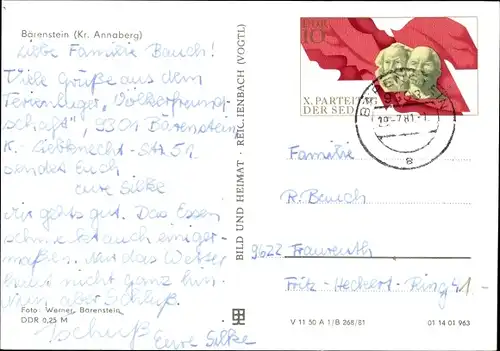 Bärenstein (Kr. Annaberg)
Liebe Familie Bauch!
Viele Grüße aus dem
Ferienlager, "Völkerfreund-
schaft", 9301 Bärenstein
K.-Liebknecht-Str. 51
sendet Euch
eure Silke
Mir gehts gut. Das Essen
schmeckt auch einiger-
maßen. Nur das Wetter
haut nicht ganz hin.
Nun aber Schluß.
Tschüß
Eure Silke
Foto: Werner, Bärenstein
DDR 0,25 M
BILD UND HEIMAT · REICHENBACH (VOGTL)
DDR
10
X. PARTEITAG
DER SED
29.-7.81
a
Familie
R. Bauch
9622 Fraureuth
Fritz-Heckert-Ring 41
V 11 50 A 1/B 268/81
01 14 01 963